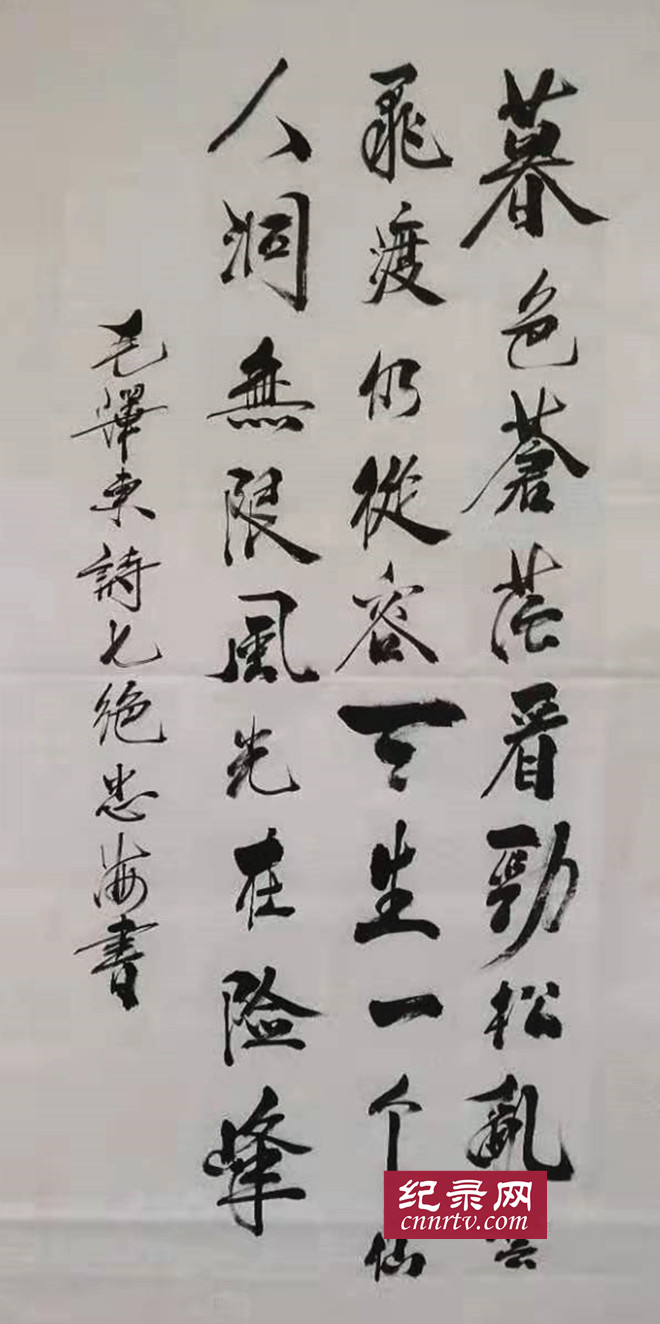 暮色蒼茫看勁松亂雲
飛渡仍從容天生一个仙
人洞無限風光在險峰
毛澤東詩七絶忠海書
纪录网
cnnrtv.com